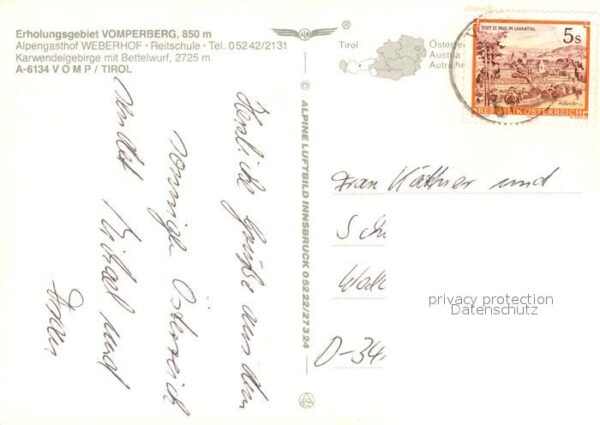 Erholungsgebiet VOMPERBERG, 850 m
Alpengasthof WEBERHOF · Reitschule · Tel. 05242/2131
Karwendelgebirge mit Bettelwurf, 2725 m
A-6134 VOMP / TIROL
®
Tirol
Österrei
Austria
Autriche
STIFT ST. PAUL IM LAVANTTAL
5s
REPUBLIK ÖSTERREICH
© ALPINE LUFTBILD INNSBRUCK 05222/27324
Herzliche Grüße aus dem
sonnige Österreich
sendet
und
Frau und
Sch
Wal
D-34
privacy protection
Datenschutz